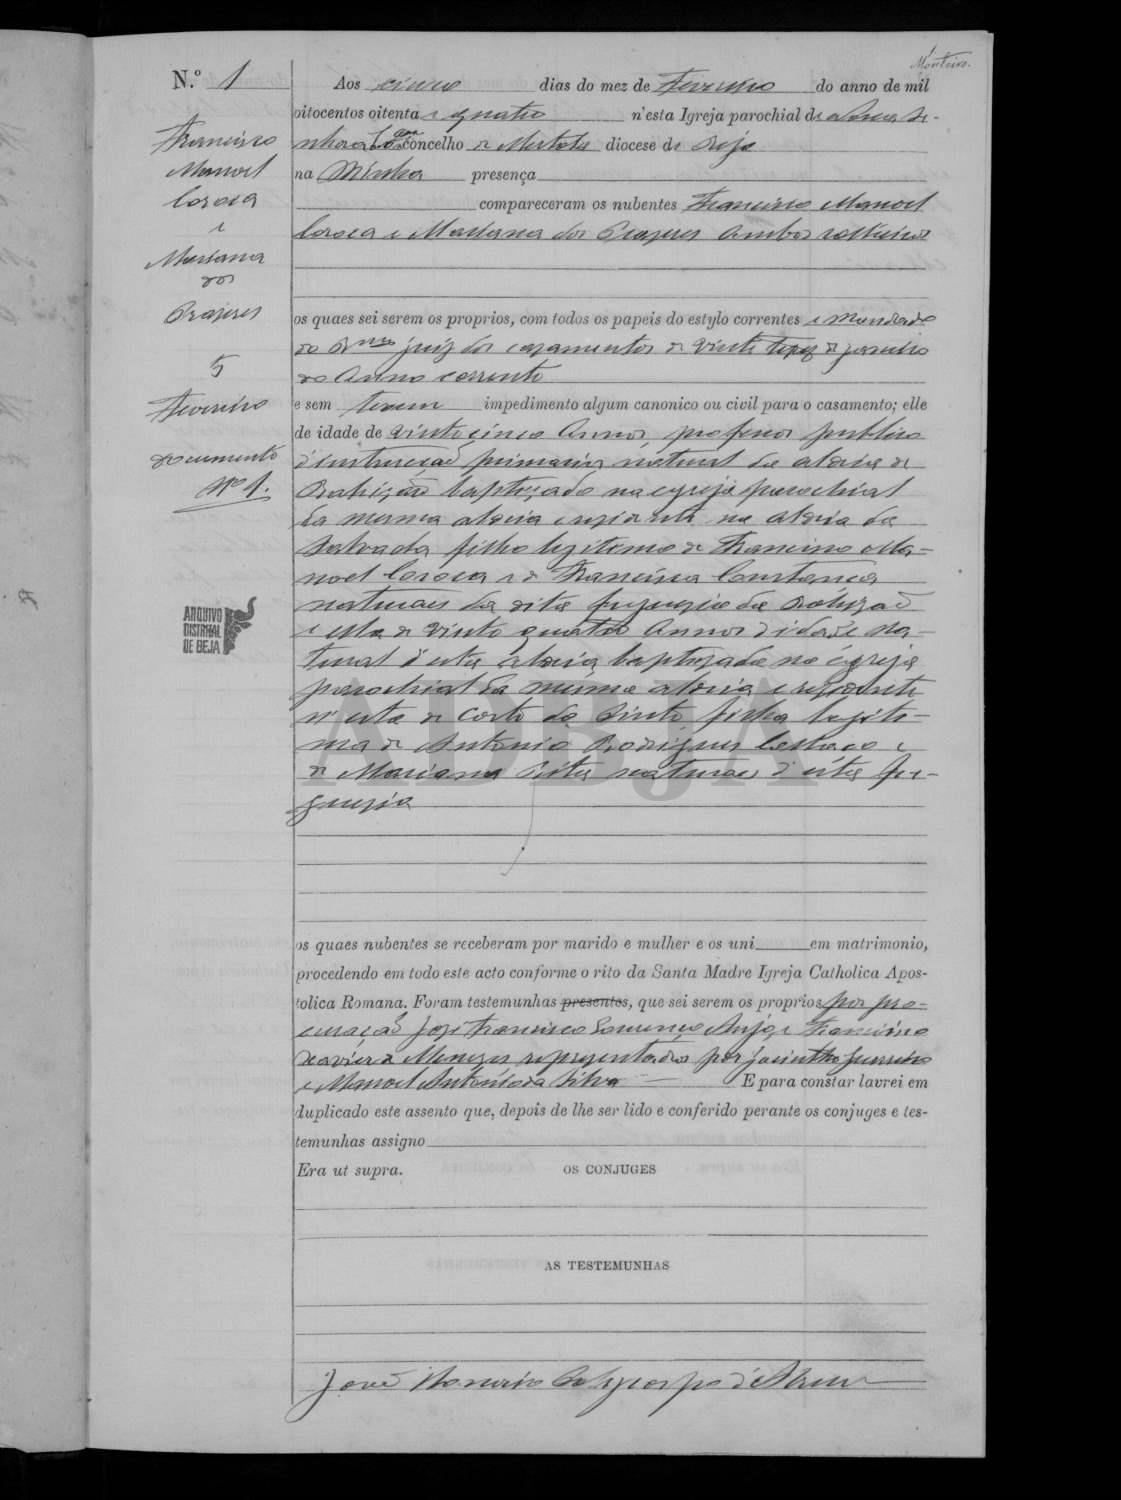 Monteiro.
N.º 1
Francisco
Manoel
Coroca
e
Marianna
dos
Prazeres
5
Fevereiro
documento
Nº 1.
ARQUIVO
DISTRITAL
DE BEJA
Aos cinco dias do mez de Fevereiro do anno de mil
oitocentos oitenta e quatro n'esta Igreja parochial de Nossa Se-
nhora concelho de Mertola diocese de Beja
na Minha presença
compareceram os nubentes Francisco Manoel
Coroca e Marianna dos Prazeres ambos solteiros
os quaes sei serem os proprios, com todos os papeis do estylo correntes e mandado
do juiz dos casamentos de vinte de janeiro
do anno corrente
e sem terem impedimento algum canonico ou civil para o casamento; elle
de idade de vinte cinco annos, professor publico
d'instrucção primaria natural da aldeia de
baptizado na egreja parochial
da mesma aldeia e residente na aldeia da
Salvada filho legitimo de Francisco Ma-
noel Coroca e de Francisca Constança
naturaes da dita freguezia de
e ella de vinte quatro annos d'idade na-
tural d'esta aldeia baptizada na egreja
parochial da mesma aldeia e residente
n'esta de Corte do Pinto, filha legiti-
ma de Antonio Rodrigues e
de Marianna Rita naturaes d'esta fre-
guezia
ADBJA
os quaes nubentes se receberam por marido e mulher e os uni em matrimonio,
procedendo em todo este acto conforme o rito da Santa Madre Igreja Catholica Apos-
tolica Romana. Foram testemunhas presentes, que sei serem os proprios por pro-
curação José Francisco Lourenço Anjo, e Francisco
Xavier Menezes representados por Jacintho Guerreiro
e Manoel Antonio da Silva E para constar lavrei em
duplicado este assento que, depois de lhe ser lido e conferido perante os conjuges e tes-
temunhas assigno
Era ut supra. OS CONJUGES
AS TESTEMUNHAS
José d'Abreu